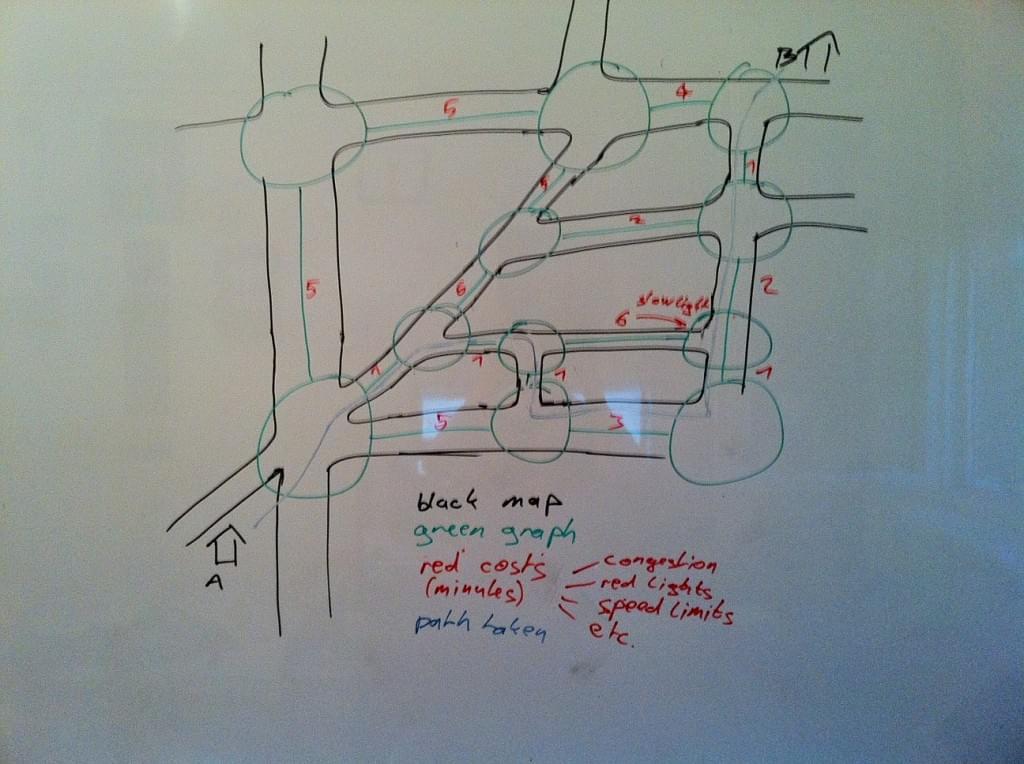 B
5
4
1
4
2
6
5
2
slow light
6
1
1
1
1
5
3
A
black map
green graph
red costs
(minutes)
congestion
red lights
speed limits
etc.
path taken